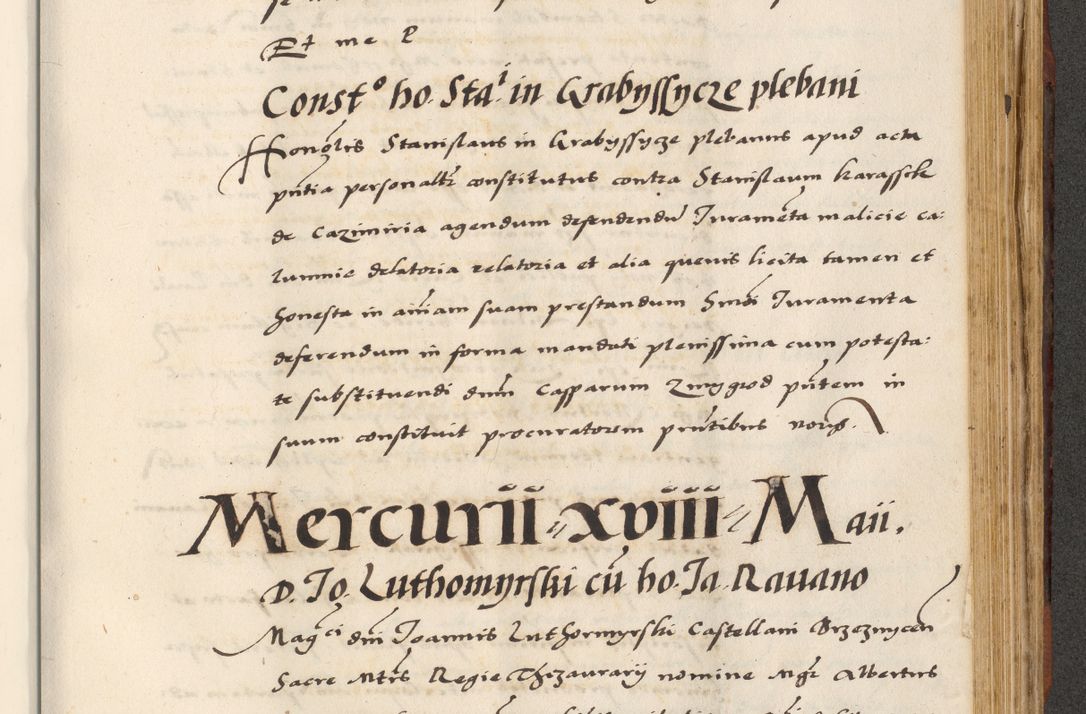 Et me P
Const° ho. Sta^i in Grabyssycze plebani
Honor̃lis Stanislaus in Grabyssycze plebanus apud acta
pñtia personaltr̃ constitutus contra Stanislaum karassek
de Cazimiria agendum defendendũ Juramẽta malicie ca:
lumnie delatoria relatoria et alia quevis licita tamen et
honesta in aĩam suam prestandum Juramenta
deferendum in forma mandati plenissima cum potesta:
te substituendi dnm̃ Casparum Zmygrod pñtem in
suum constituit procuratorem pñtibus
Mercurii xviiii Maii.
D. Jo. Luthomyrski cũ ho. Ja. Ravano
Mag^ci dnĩ Joannis Luthomyrski Castellani Brzezinycen̄
Sacre Mtis̃ Regie Thezaurarij nomine Mgr̃ Albertus